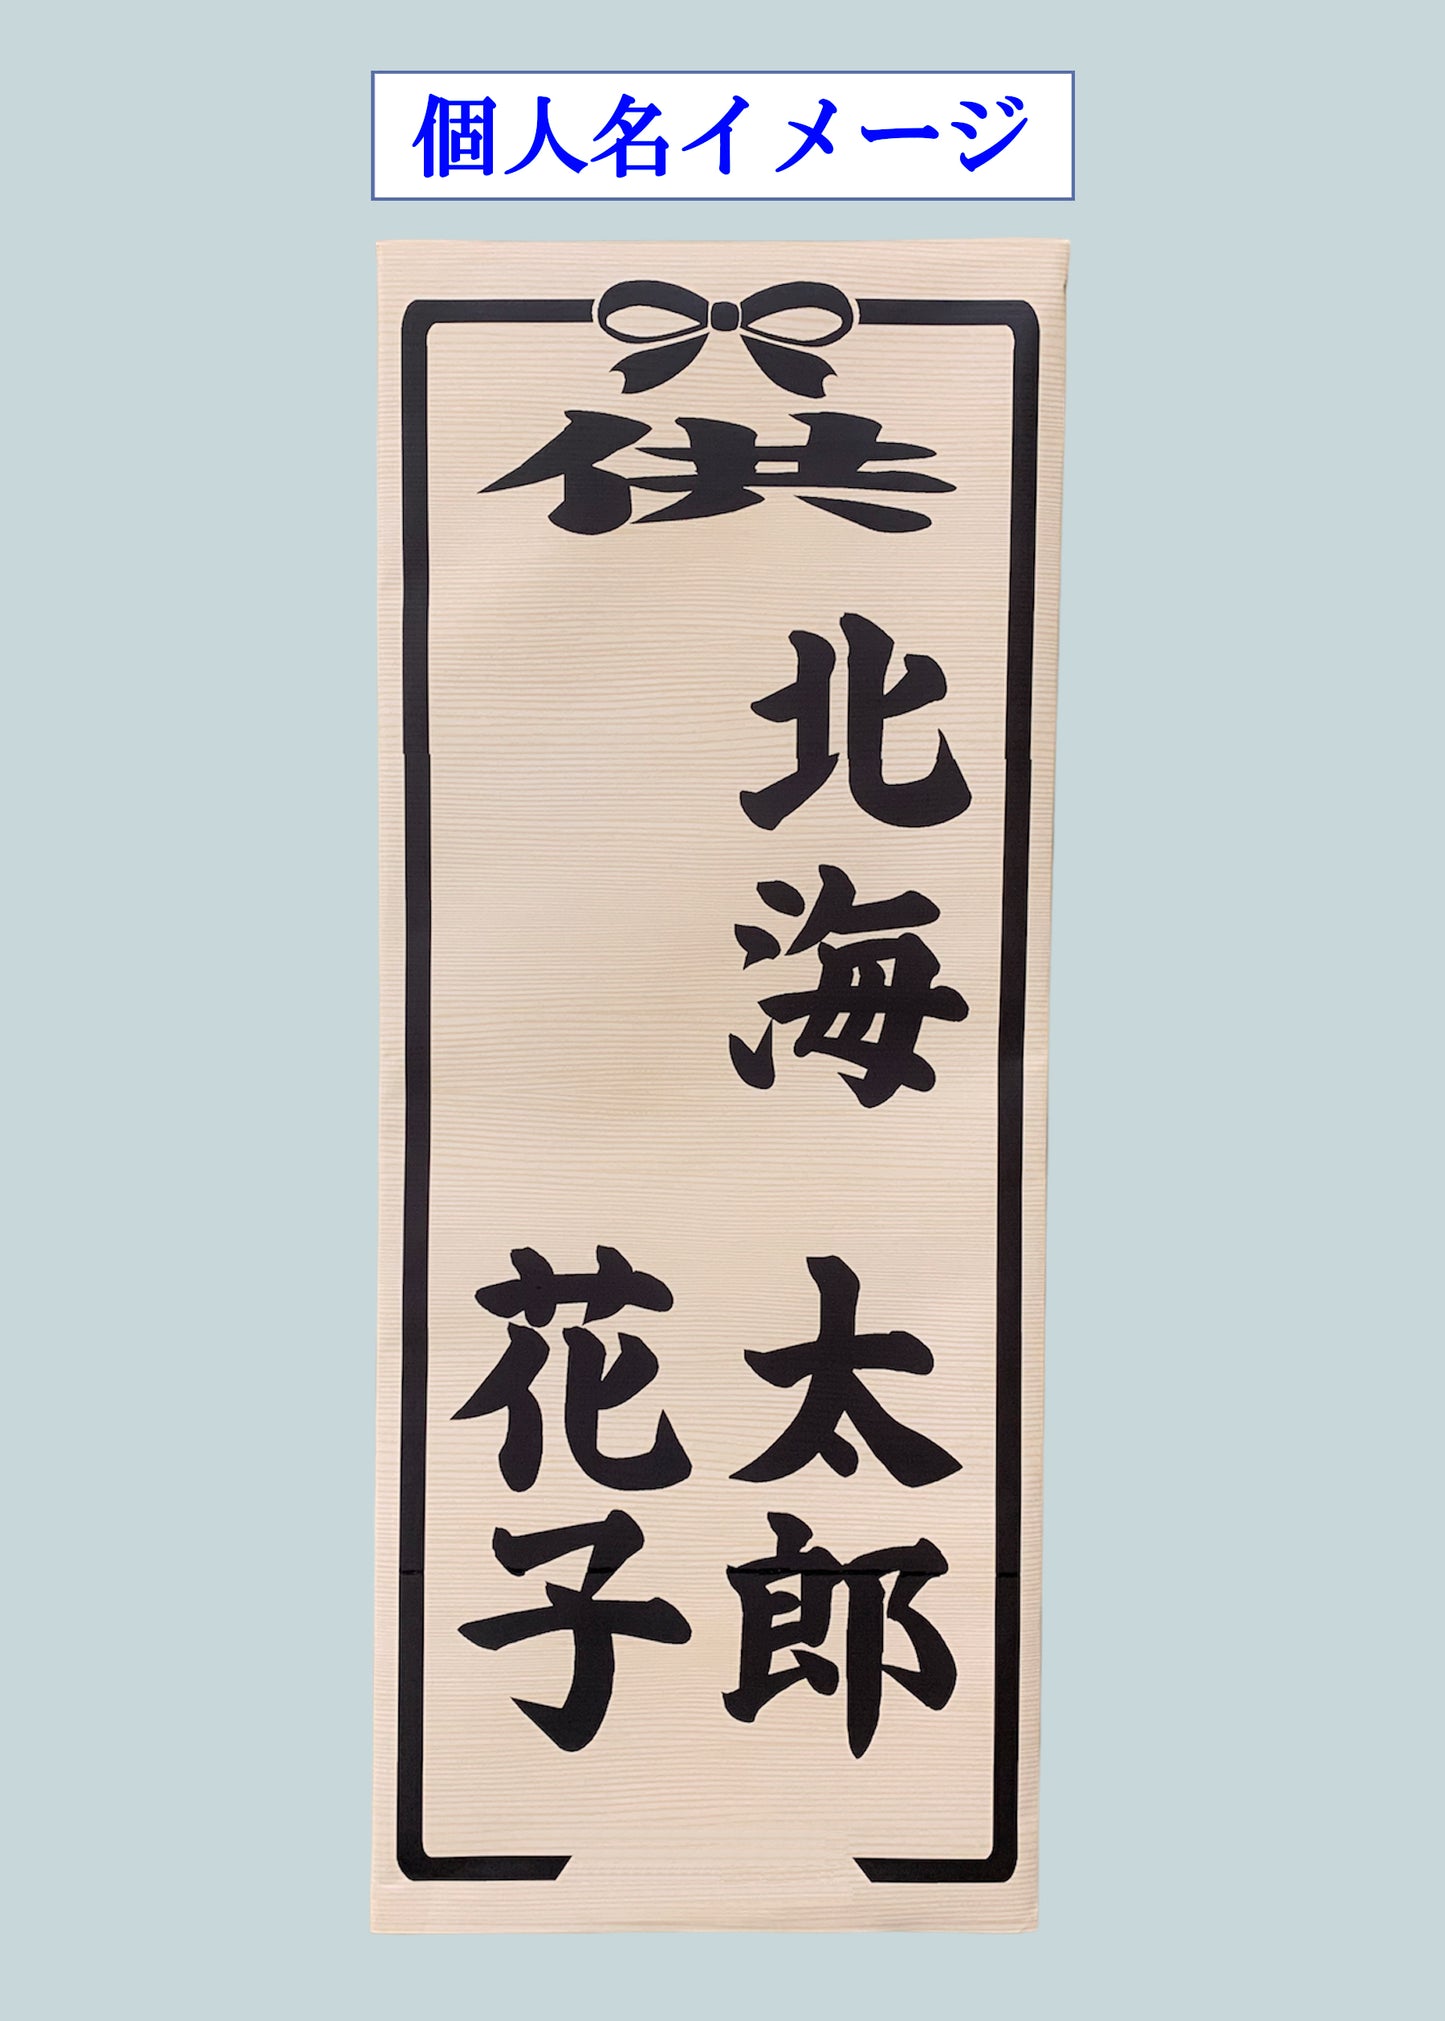 個人名イメージ
供
北海 太郎
花子